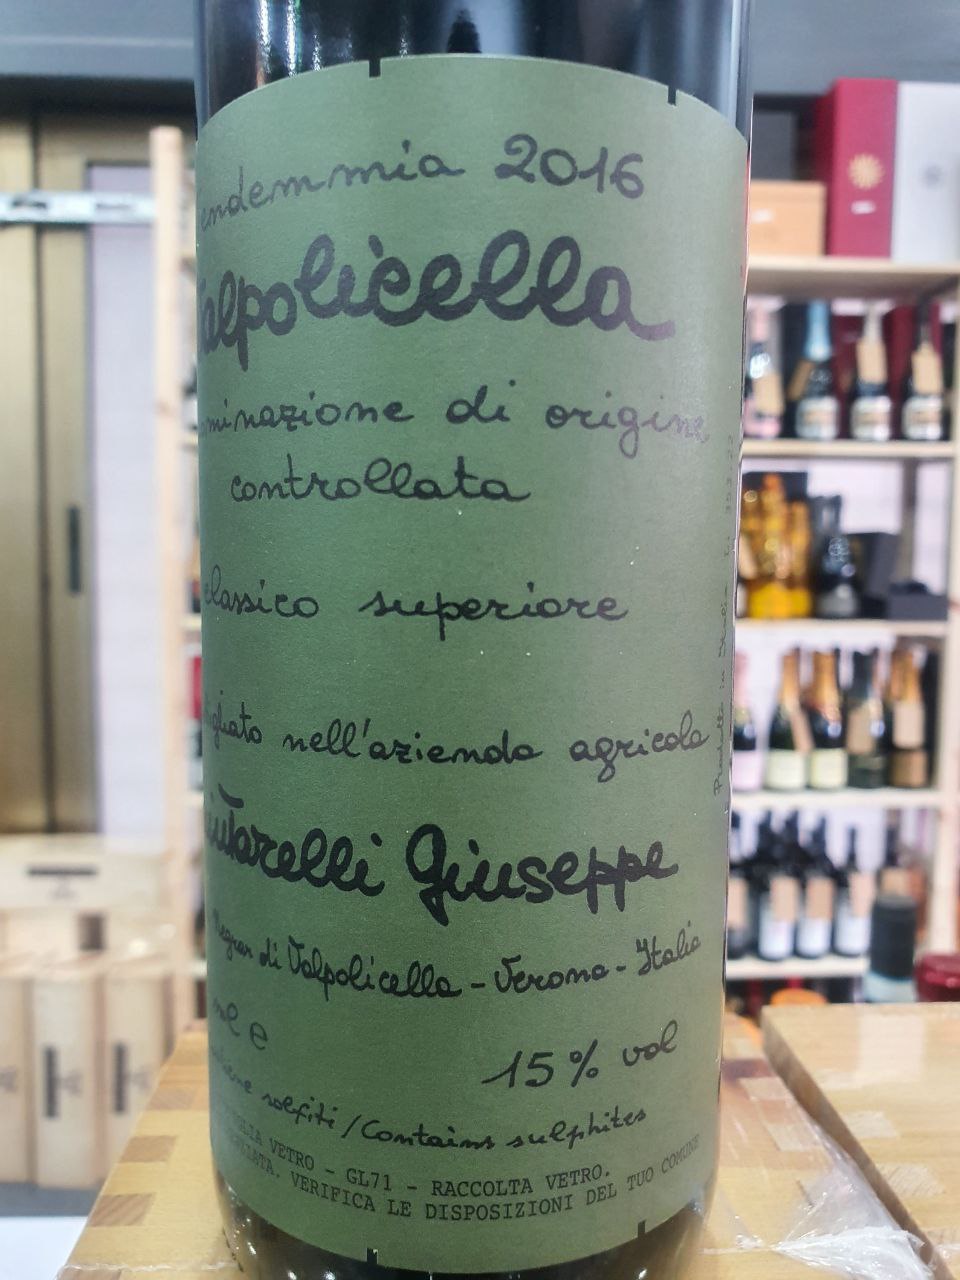 Vendemmia 2016
Valpolicella
minazione di origine
controllata
classico superiore
gliato nell'azienda agricola
intarelli Giuseppe
Negrar di Valpolicella - Verona - Italia
ml e
15% vol
solfiti / Contains sulphites
VETRO - GL71 - RACCOLTA VETRO.
VERIFICA LE DISPOSIZIONI DEL TUO COMUNE
Prodotto in Italia